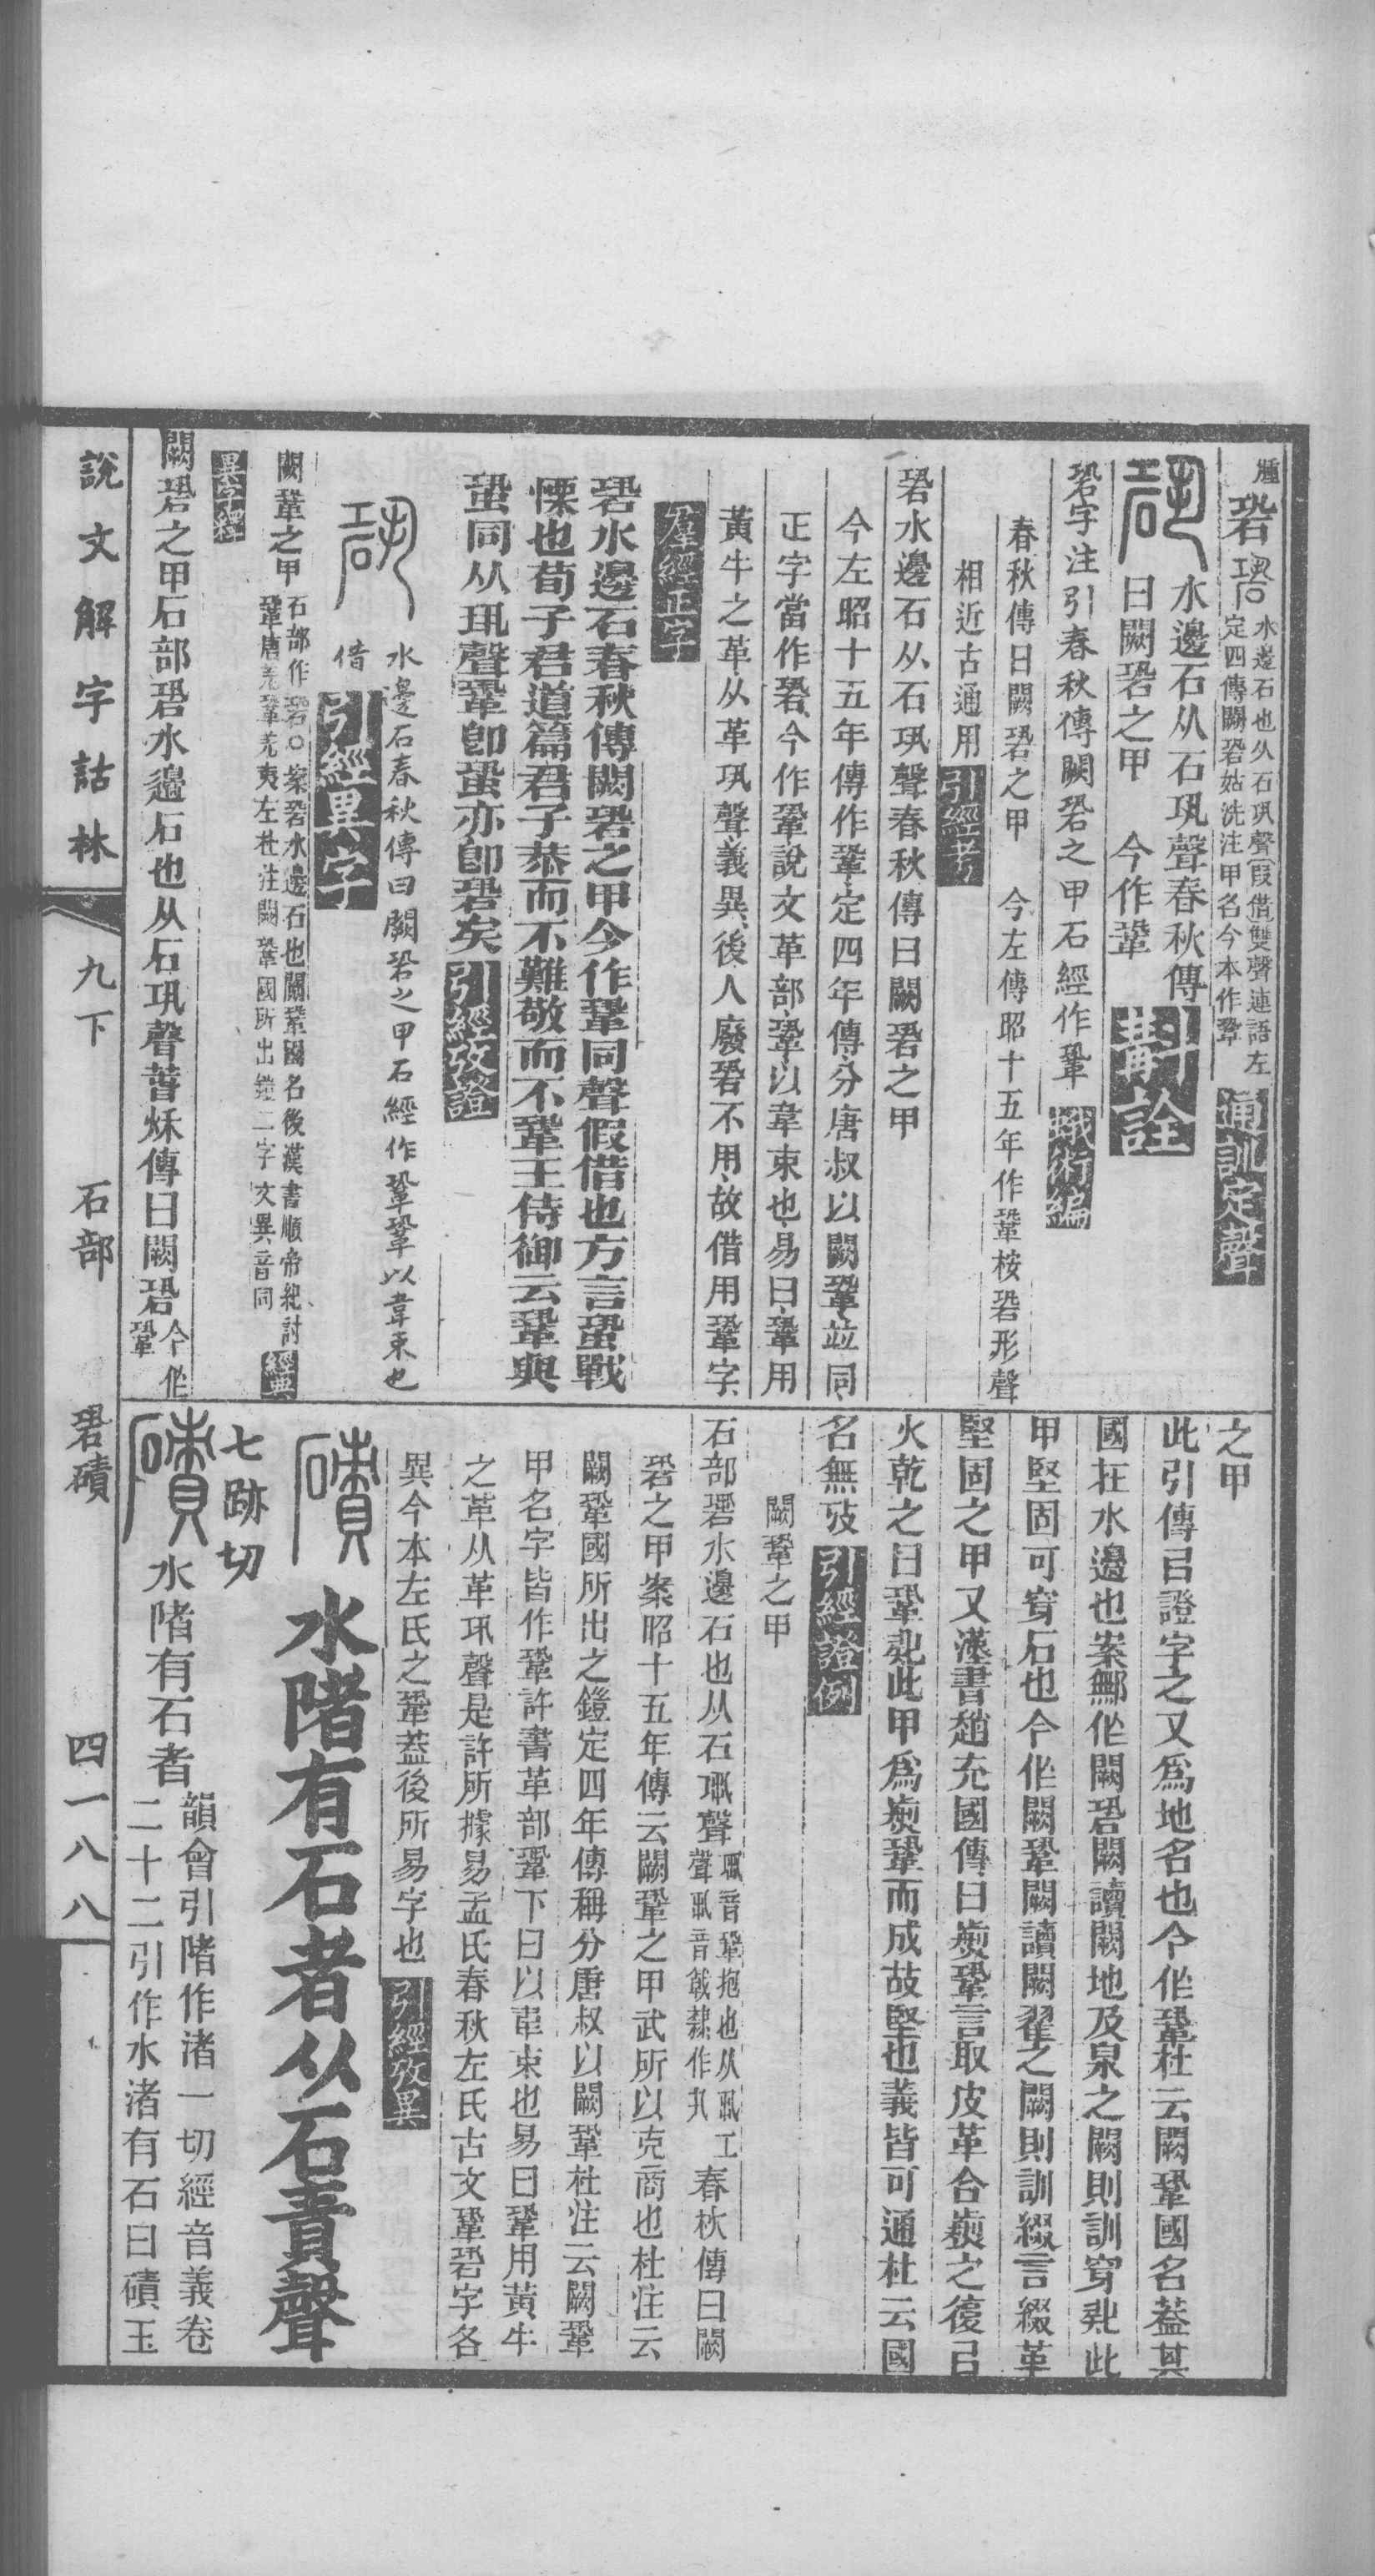 水邊石也从石巩聲(叚借)雙聲連語左
定四傳闕碧姑洗注甲名今本作鞏
通訓定聲
水邊石从石巩聲春秋傳
曰闕碧之甲 今作鞏
斠詮
碧字注引春秋傳闕碧之甲石經作鞏
蛾術編
春秋傳曰闕碧之甲 今左傳昭十五年作鞏桉碧形聲
相近古通用
引經考
碧水邊石从石巩聲春秋傳曰闕碧之甲
今左昭十五年傳作鞏定四年傳分唐叔以闕鞏竝同
正字當作碧今作鞏說文革部鞏以韋束也易曰鞏用
黃牛之革从革巩聲義異後人廢碧不用故借用鞏字
羣經正字
碧水邊石春秋傳闕碧之甲今作鞏同聲假借也方言蛩戰
慄也荀子君道篇君子恭而不難敬而不鞏王侍御云鞏與
蛩同从巩聲鞏卽蛩亦卽碧矣
引經攷證
水邊石春秋傳曰闕碧之甲石經作鞏鞏以韋束也
借
引經異字
闕鞏之甲
石部作碧○案碧水邊石也闕鞏國名後漢書順帝紀討
鞏唐羌鞏羌夷左杜注闕鞏國所出鎧二字文異音同
經典
異字經
闕碧之甲石部碧水邊石也从石巩聲萅秌傳曰闕碧
今作
鞏
之甲
此引傳㠯證字之又爲地名也今作鞏杜云闕鞏國名葢其
國在水邊也案鄦作闕碧闕讀闕地及泉之闕則訓穿此
甲堅固可穿石也今作闕鞏闕讀闕翟之闕則訓綴言綴革
堅固之甲又漢書趙充國傳曰瘃鞏言取皮革合瘃之復㠯
火乾之曰鞏此甲爲瘃鞏而成故堅也義皆可通杜云國
名無攷
引經證例
闕鞏之甲
石部碧水邊石也从石巩聲
巩音鞏抱也从丮工
聲丮音戟隸作丸
春秋傳曰闕
碧之甲案昭十五年傳云闕鞏之甲武所以克商也杜注云
闕鞏國所出之鎧定四年傳稱分唐叔以闕鞏杜注云闕鞏
甲名字皆作鞏許書革部鞏下曰以韋束也易曰鞏用黃牛
之革从革巩聲是許所據易孟氏春秋左氏古文鞏碧字各
異今本左氏之鞏葢後所易字也
引經攷異
磧
水陼有石者从石責聲
七跡切
磧
水陼有石者
韻會引陼作渚一切經音義卷
二十二引作水渚有石曰磧玉
說文解字詁林
九下
石部
碧磧
四一八八